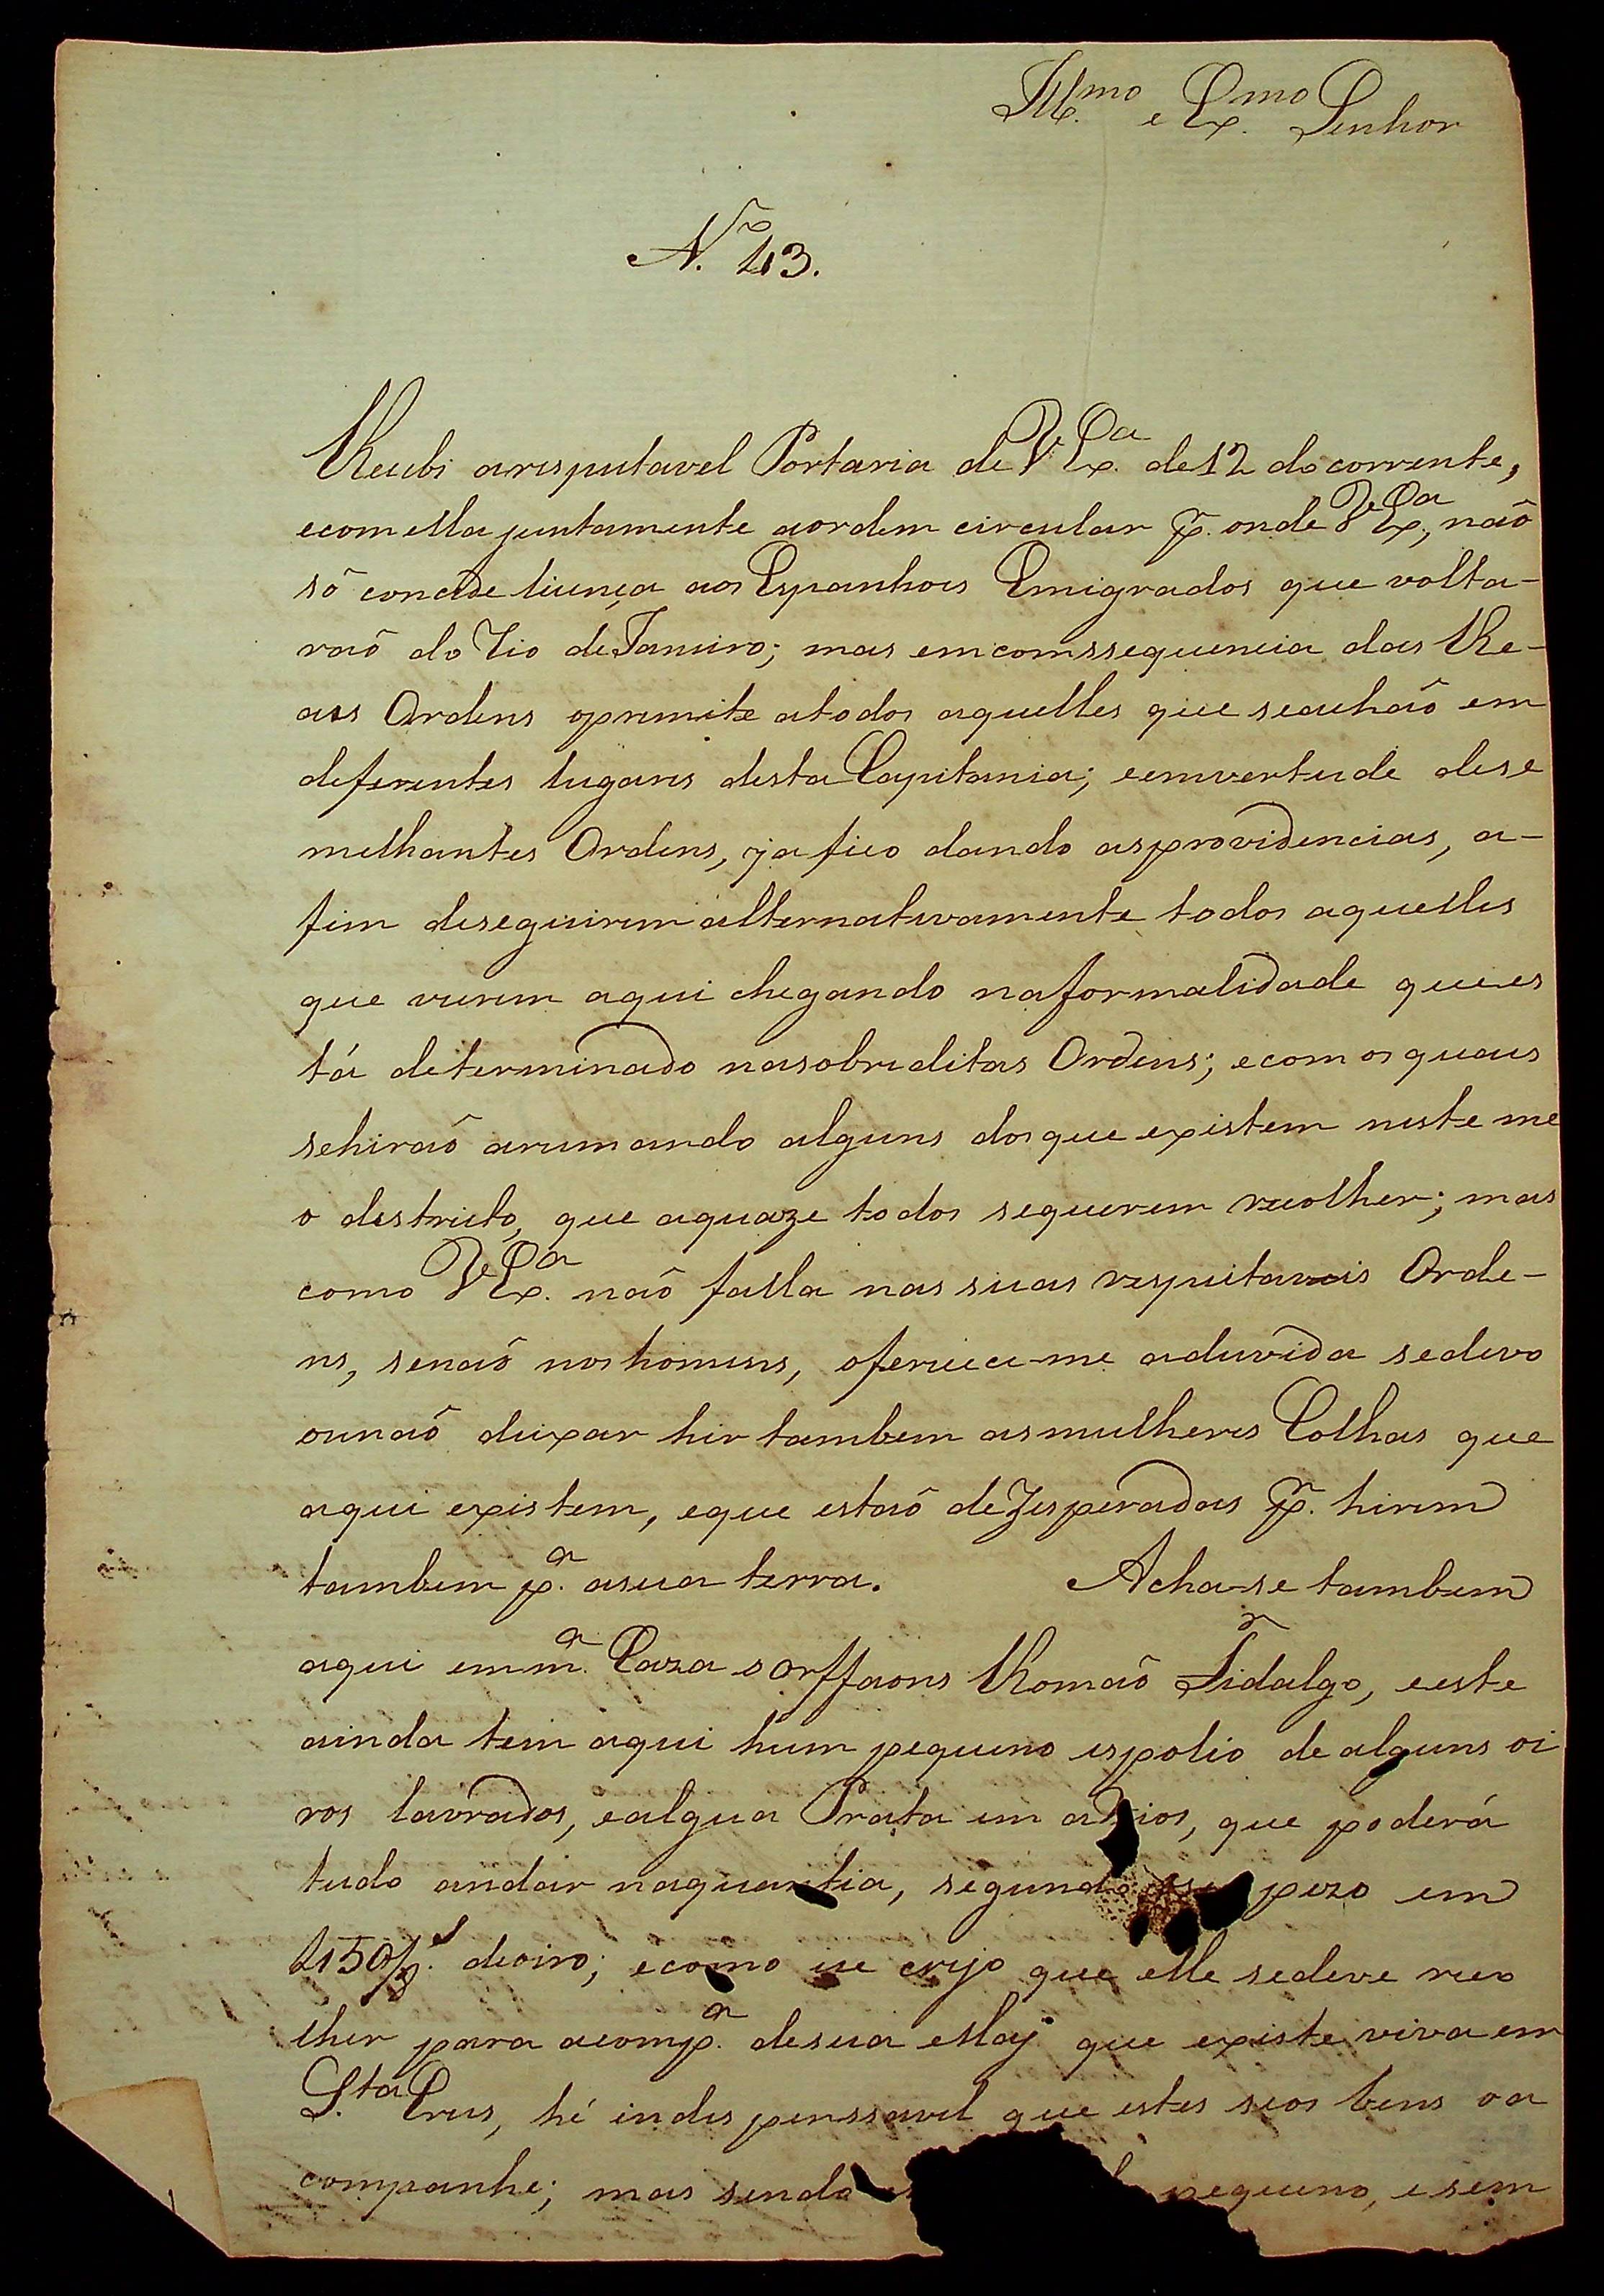 Ill.mo e Ex.mo Senhor
N.º 43.
Recebi a respeitavel Portaria de V Ex.a de 12 do corrente,
e com ella juntamente a ordem circular p.r onde V Ex.a, naõ
só concede licença aos Espanhoes Emigrados que volta-
raõ do Rio de Janeiro; mas em comssequencia das Re-
aes Ordens o premite a todos aquelles que se achaõ em
deferentes lugares desta Capitania; e em vertude de se
melhantes Ordens, ja fico dando as providencias, a-
fim de seguirem alternativamente todos aquelles
que vierem aqui chegando na formalidade que es
tá determinado nas obreditas Ordens; e com os quaes
se hiraõ arumando alguns dos que existem neste me
o destricto, que a quaze todos se querem recolher; mas
como V Ex.a naõ falla nas suas respeitaveis Orde-
ns, senaõ nos homens, oferece-me a duvida se devo
ou naõ deixar hir tambem as mulheres Colhas que
aqui existem, e que estaõ dezesperadas p.r hirem
tambem p.a a sua terra. Acha-se tambem
aqui em m.a Caza o orffaons Romaõ Fidalgo, e este
ainda tem aqui hum pequeno espolio de alguns oi
ros lavrados, e algua Prata em , que poderá
tudo andar na quantia, segundo o seu pezo em
150/8.s de oiro; e como ue crejo que elle se deve reco
lher para a comp.a de sua Maj que existe viva em
S.ta Crus, hé indispenssavel que estes seos bens o a
companhe; mas sendo pequeno, e sem